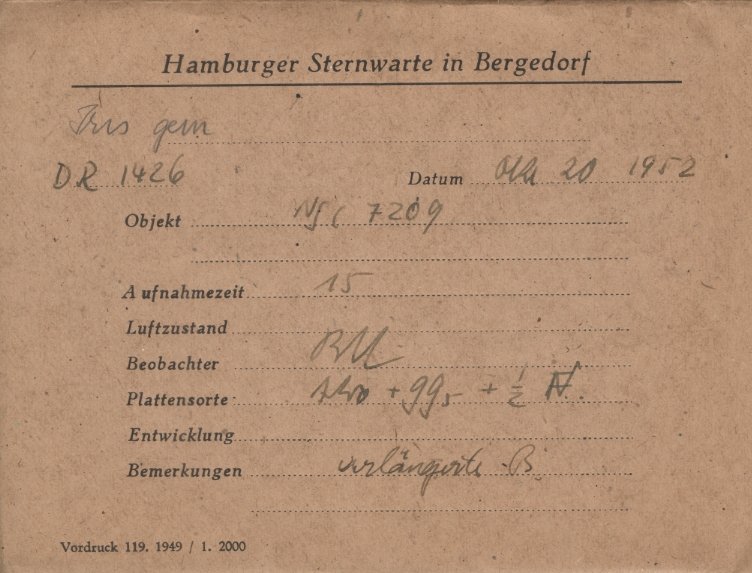 Hamburger Sternwarte in Bergedorf
gem
DR 1426 Datum Okt 20 1952
Objekt NGC 7209
Aufnahmezeit 15
Luftzustand
Beobachter
Plattensorte + gg5 + ½
Entwicklung
Bemerkungen verlängerte B
Vordruck 119. 1949 / 1. 2000